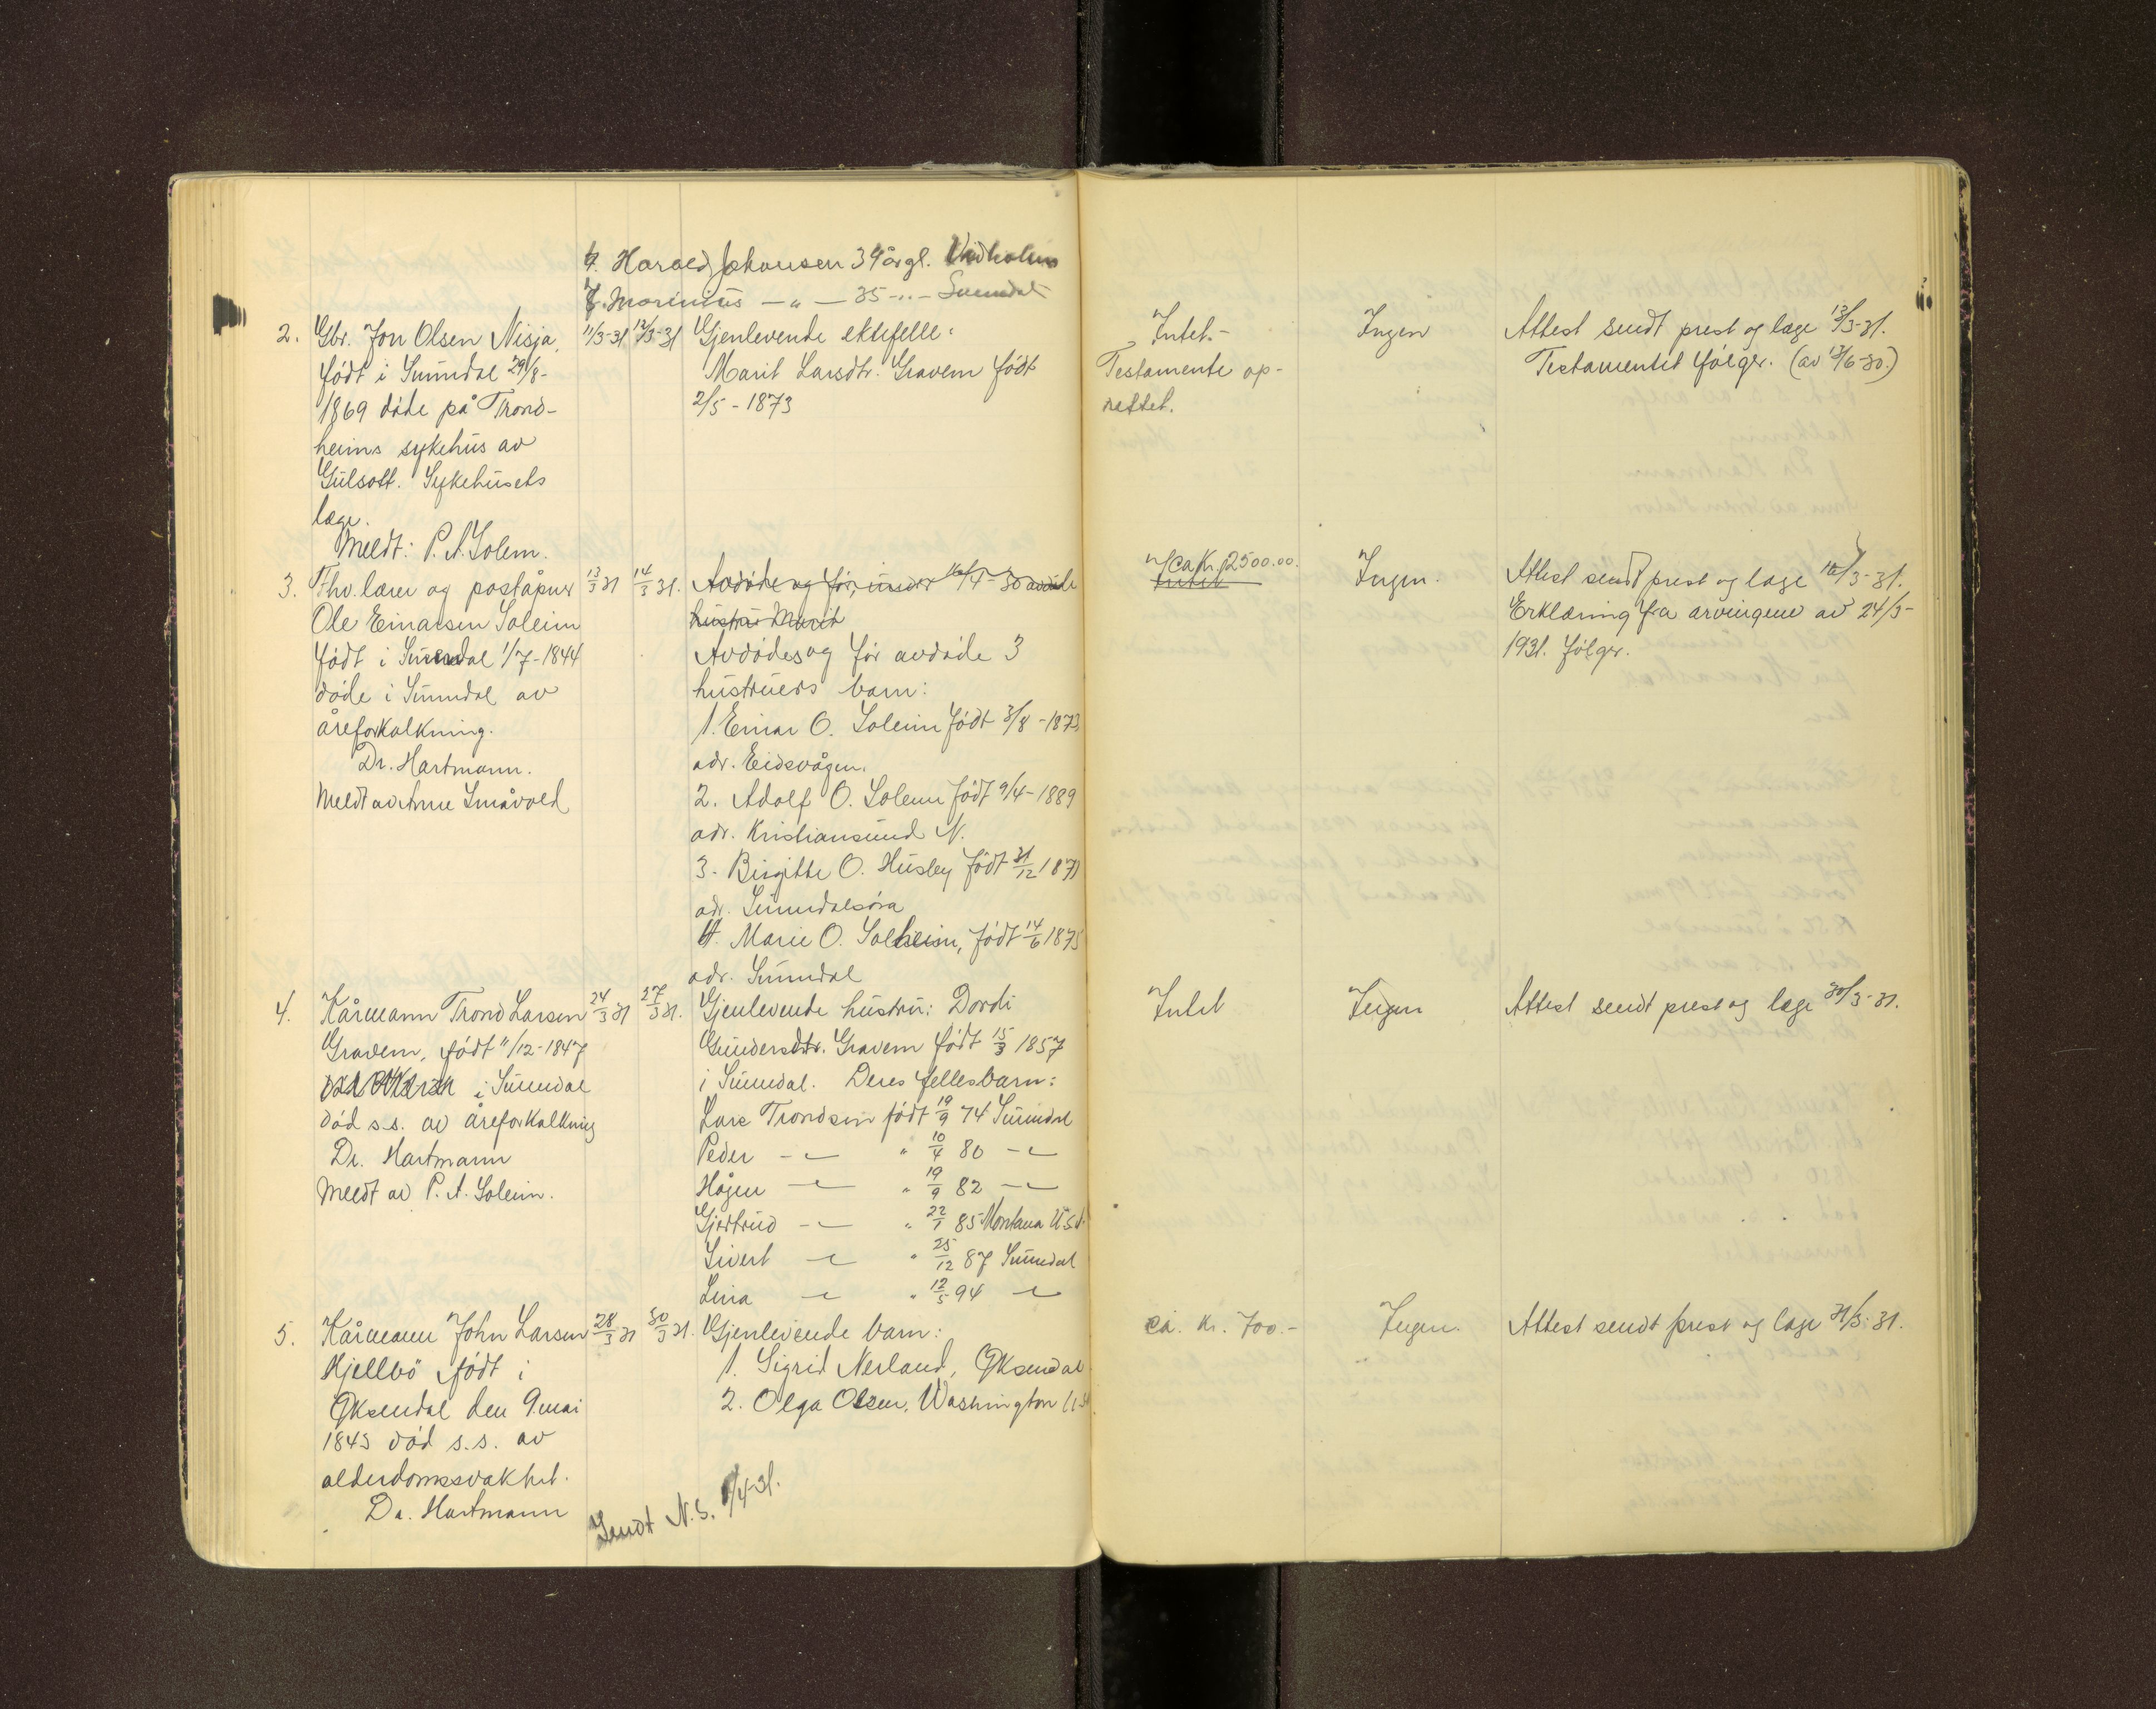 7. Harald Johansen 39 år gl. Vidholm
8. Marinius — " — 35 - " - Sunndal
2. Gbr. Jon Olsen Nisja,
født i Sunndal 29/8-
1869 døde på Trond-
heims sykehus av
Gulsott. Sykehusets
læge.
Meldt: P. A. Solem.
11/3-31 12/3-31 Gjenlevende ektefelle:
Marit Larsdtr. Gravem født
2/5 - 1873
Intet.-
Testamente op-
rettet.
Ingen
Attest sendt prest og læge 13/3-31.
Testamentet følger. (av 13/6-30.)
3. Fhv. lærer og poståpner
Ole Einarsen Soleim
født i Sunndal 1/7-1844
døde i Sunndal av
åreforkalkning.
Dr. Hartmann.
Meldt av Arne Småvold
13/3 31 14/3 31. Avdøde og før, avdøde
hustru Marit
Avdødes og før avdøde 3
hustruers barn:
1. Einar O. Soleim født 3/8 - 1873
adr. Eidsvågen.
2. Adolf O. Soleim født 9/4 - 1889
adr. Kristiansund N.
3. Birgitte O. Husby født 31/12 1871
adr. Sunndalsøra
4. Marie O. Solheim, født 14/6 1875
adr. Sunndal
ca Kr. 2500.00.
Intet
Ingen.
Attest sendt prest og læge /3-31.
Erklæring fra arvingene av 24/3-
1931. følger.
4. Kårmann Trond Larsen
Gravem, født 11/12-1847
i Sunndal
død s.s. av åreforkalkning
Dr. Hartmann
Meldt av P. A. Soleim.
24/3 31 27/3 31. Gjenlevende hustru: Dordi
Gundersdtr. Gravem født 15/3 1857
i Sunndal. Deres fellesbarn:
Lars Trondsen født 19/9 74 Sunndal
Peder — " — " 10/4 80 — " —
Hågen — " — " 19/9 82 — " —
Gjertrud — " — " 22/1 85 Montana U.S.A.
Sivert — " — " 25/12 87 Sunndal
Lina — " — " 12/5 94 — " —
Intet
Ingen
Attest sendt prest og læge 30/3-31.
5. Kårmann John Larsen
Hjellbø født i
Øksendal den 9. mai
1843 død s.s. av
alderdomssvakhet.
Dr. Hartmann
28/3 31 30/3 31. Gjenlevende barn:
1. Sigrid Nerland, Øksendal
2. Olga Olsen, Washington U.S.A.
ca. Kr. 700.-
Ingen.
Attest sendt prest og læge 31/3-31.
Sendt N.S. /4-31.